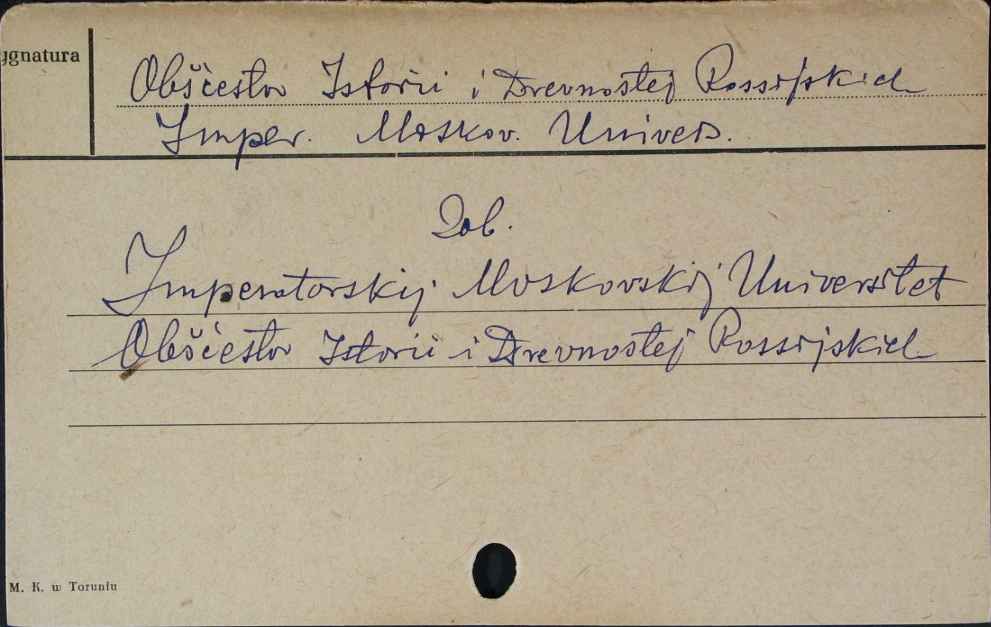 ygnatura
Obščestvo Istorii i Drevnostej Rossijskich
Imper. Moskov. Univers.
Zob.
Imperatorskij Moskovskij Universitet
Obščestvo Istorii i Drevnostej Rossijskich
M. K. w Toruniu